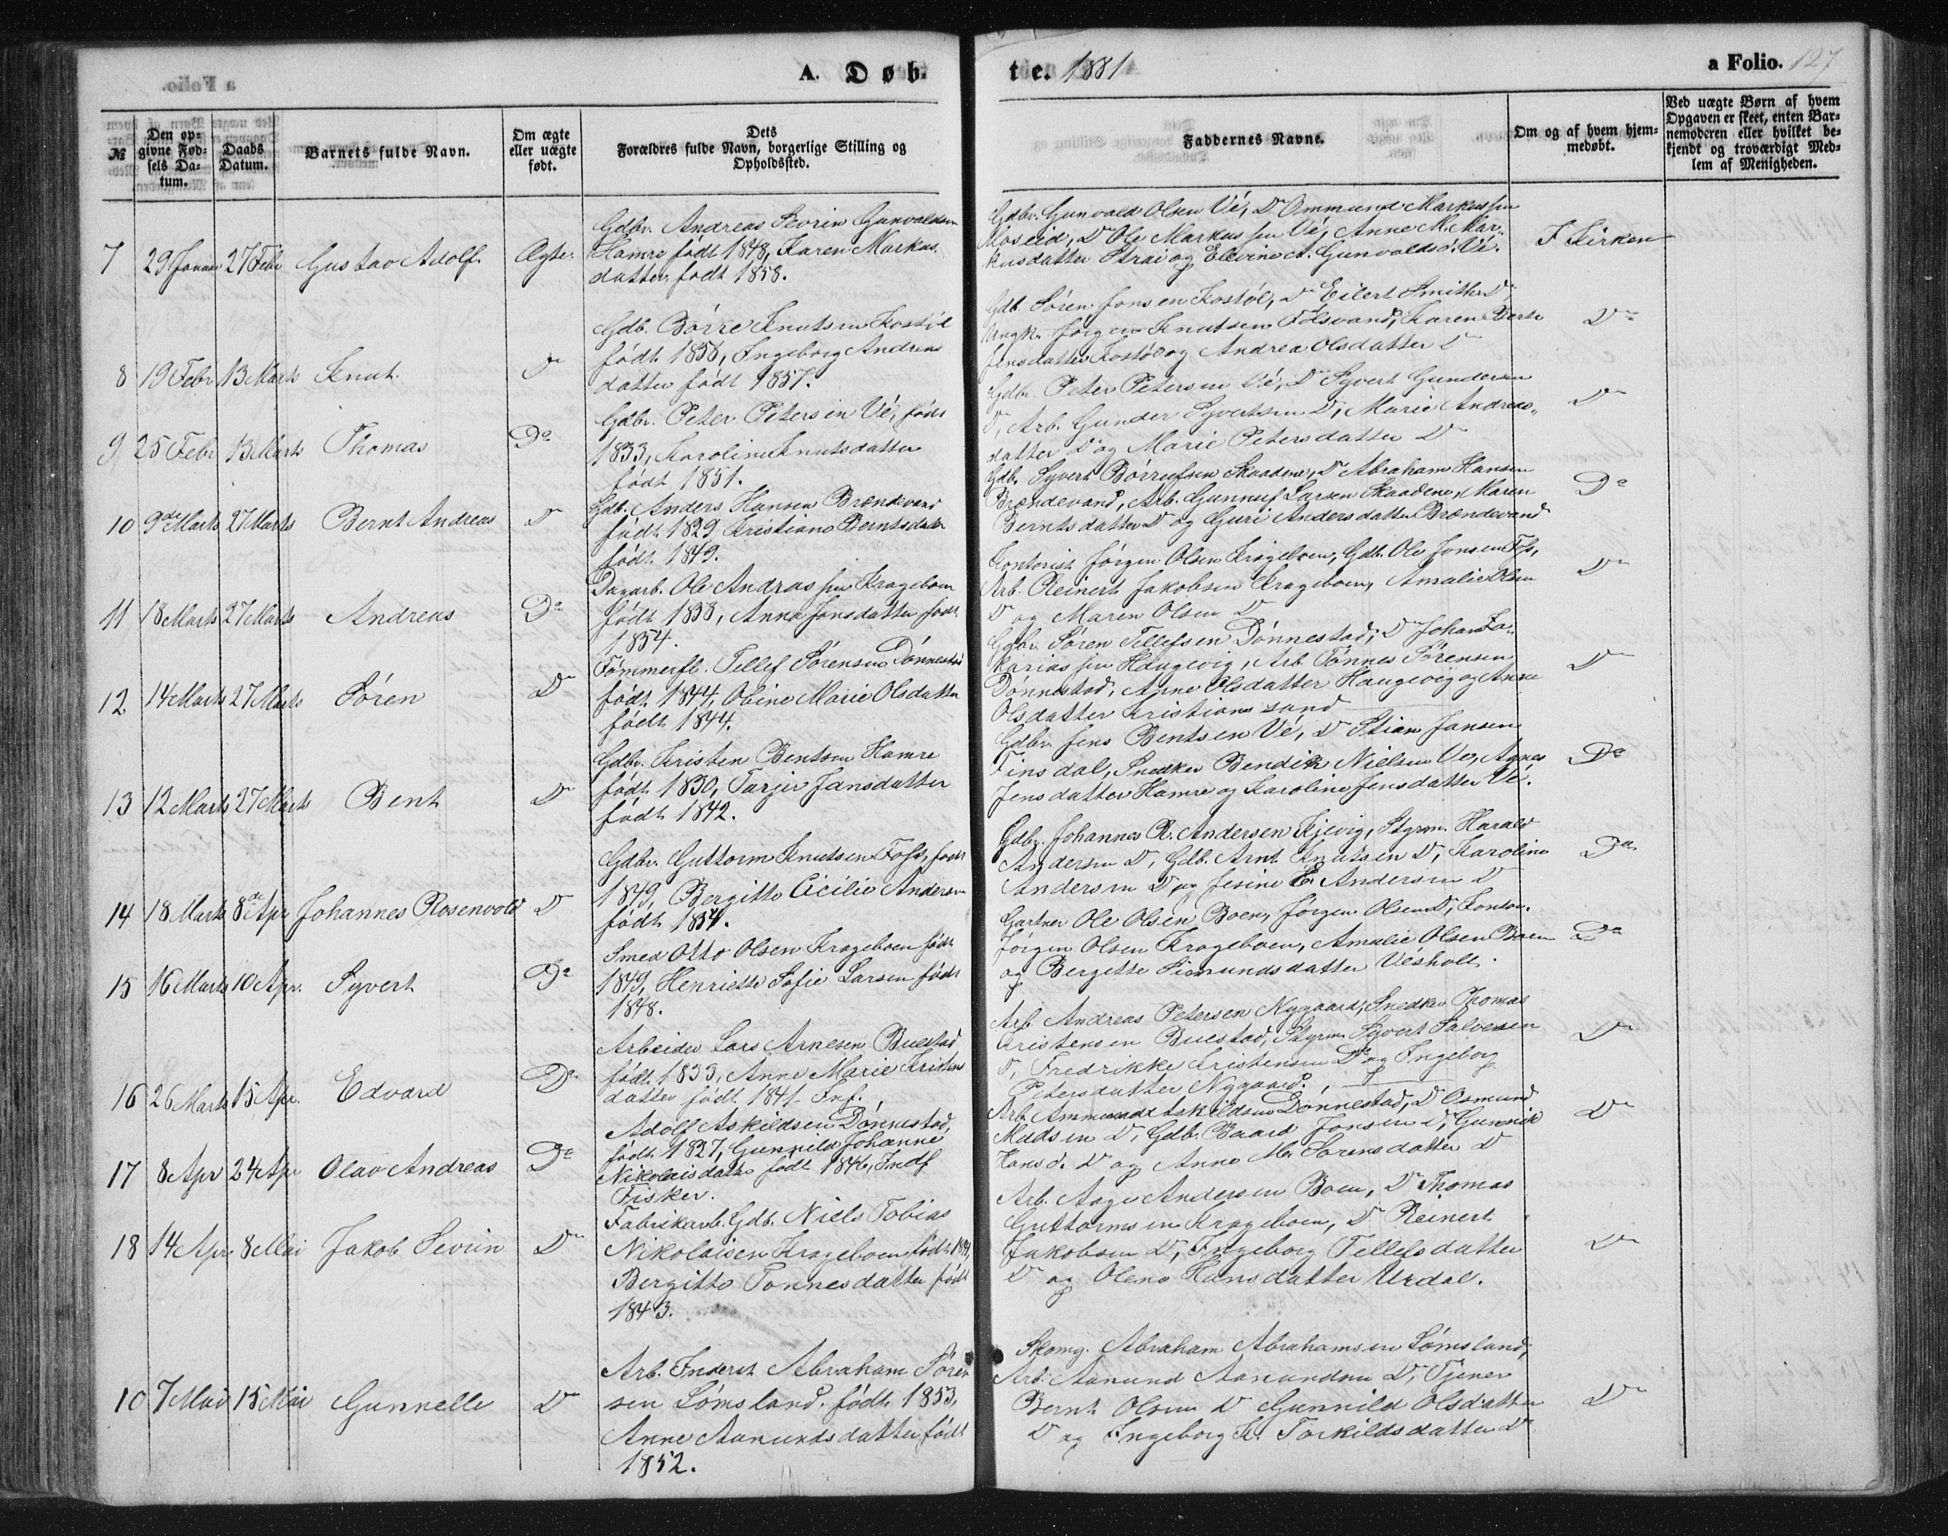 A. Døb-
te. 1881
a Folio. 127
№
Den op-
givne Fød-
sels Da-
tum.
Daabs
Datum.
Barnets fulde Navn.
Om ægte
eller uægte
født.
Dets
Forældres fulde Navn, borgerlige Stilling og
Opholdssted.
Faddernes Navne.
Om og af hvem hjem-
medøbt.
Ved uægte Børn af hvem
Opgaven er skeet, enten Bar-
nemoderen eller hvilket be-
kjendt og troværdigt Med-
lem af Menigheden.
7 29 Januar 27 Febr Gustav Adolf. Ægte.
Gdbr. Andreas Severin Gunvaldsen
Hamre født 1848, Karen Markus-
datter født 1858.
Gdbr. Gunvald Olsen Vé, Do Ommund Markussen
Moseid, Do Ole Markussen Vé, Anne M. Mar-
kusdatter Strai og Elevine A. Gunvaldsd. Vé.
I Kirken
8 19 Febr 13 Marts Knut. Do
Gdb. Børre Knutsen Kostøl
født 1856, Ingeborg Andreas
datter født 1857.
Gdb. Søren Jonsen Kostøl, Do Eilert Smith Do,
Ungk. Jørgen Knutsen Følsvand, Karen Berte
Jensdatter Kostøl og Andrea Olsdatter Do
Do
9 25 Febr 13 Marts Thomas Do
Gdbr. Peter Petersen Vé, født
1833, Karoline Knutsdatter
født 1851.
Gdbr. Peter Petersen Vé, Do Syvert Gundersen
Do, Arb. Gunder Syvertsen Do, Marie Andreas-
datter Do og Marie Petersdatter Do
Do
10 9de Marts 27 Marts Bernt Andreas Do
Gdb. Anders Hansen Brændevand
født 1829, Kristiane Berntsdatter
født 1849.
Gdb. Syvert Børrufsen Skaadene, Do Abraham Hansen
Brændevand, Arb. Gunnuf Larsen Skaadene, Maren
Berntsdatter Do og Guri Andersdatter Brændevand
Do
11 18 Marts 27 Marts Andreas Do
Dagarb. Ole Andreassen Krageboen
født 1838, Anna Jonsdatter født
1854.
Kontorist Jørgen Olsen Krageboen, Gdb. Ole Jonsen Foss,
Arb. Reinert Jakobsen Krageboen, Amalie Olsen
Do og Maren Olsen Do
Do
12 14 Marts 27 Marts Søren Do
Tømmerfl. Tellef Sørensen Dønnestad
født 1844, Oline Marie Olsdatter
født 1844.
Gdbr. Søren Tellefsen Dønnestad, Do Johan Za-
kariassen Haugevig, Arb. Tønnes Sørensen
Dønnestad, Anne Olsdatter Haugevig og Anne
Olsdatter Kristianssand
Do
13 12 Marts 27 Marts Bent Do
Gdbr. Kristen Bentsen Hamre
født 1830, Tarjer Jansdatter
født 1842.
Gdbr. Jens Bentsen Vé, Do Stian Jansen
Finsdal, Snedker Bendik Nielsen Ve, Agnes
Jensdatter Hamre og Karoline Jensdatter Vé.
Do
14 18 Marts 8de Apr Johannes Rosenvold Do
Gdbr. Guttorm Knutsen Foss, født
1849, Bergitte Cicilie Andersen
født 1854.
Gdbr. Johannes R. Andersen Kjevig, Styrm. Harald
Andersen Do, Gdb. Arnt Knutsen Do, Karoline
Andersen Do og Jesine E. Andersen Do
Do
15 16 Marts 10 Apr. Syvert Do
Smed Otto Olsen Krageboen født
1849, Henriette Sofie Larsen født
1848.
Gartner Ole Olsen Boen, Jørgen Olsen Do, Kontor.
Jørgen Olsen Krageboen, Amalie Olsen Boen
og Bergitte Simundsdatter Vesholt.
Do
16 26 Marts 15 Apr. Edvard Do
Arbeider Lars Arnesen Buestad
født 1833, Anne Marie Kristens
datter født 1841.
Arb. Andreas Petersen Nygaard, Snedker Thomas
Kristensen Buestad, Styrm. Syvert Salvesen
Do, Fredrikke Kristensen Do og Ingeborg
Petersdatter Nygaard.
Do
17 8 Apr 24 Apr Olav Andreas Do
Adolf Askildsen Dønnestad,
født 1827, Gunnild Johanne
Nikolaisdatter født 1846, Indf
Fisker.
Arb. Ammund Askildsen Dønnestad, Do Osmund
Madsen Do, Gdb. Baard Jonsen Do, Gunnild
Hansd. Do og Anne M. Sørensdatter Do
Do
18 14 Apr 8 Mai Jakob Severin Do
Fabrikarb. Gdb. Niels Tobias
Nikolaisen Krageboen født
Bergitte Tønnesdatter født
1843.
Arb. Aage Andersen Boen, Do Thomas
Guttormsen Krageboen, Do Reinert
Jakobsen Do, Ingeborg Tellefsdatter
Do og Olene Hansdatter Urdal.
Do
10 7 Mai 15 Mai Gunnelle Do
Arb. Inderst Abraham Søren
sen Lømsland, født 1853,
Anne Aanundsdatter født
1852.
Skomg. Abraham Abrahamsen Lømsland,
Arb. Aanund Aanundsen Do, Tjener
Bernt Olsen Do Gunnild Olsdatter
Do og Ingeborg K. Torkildsdatter Do
Do